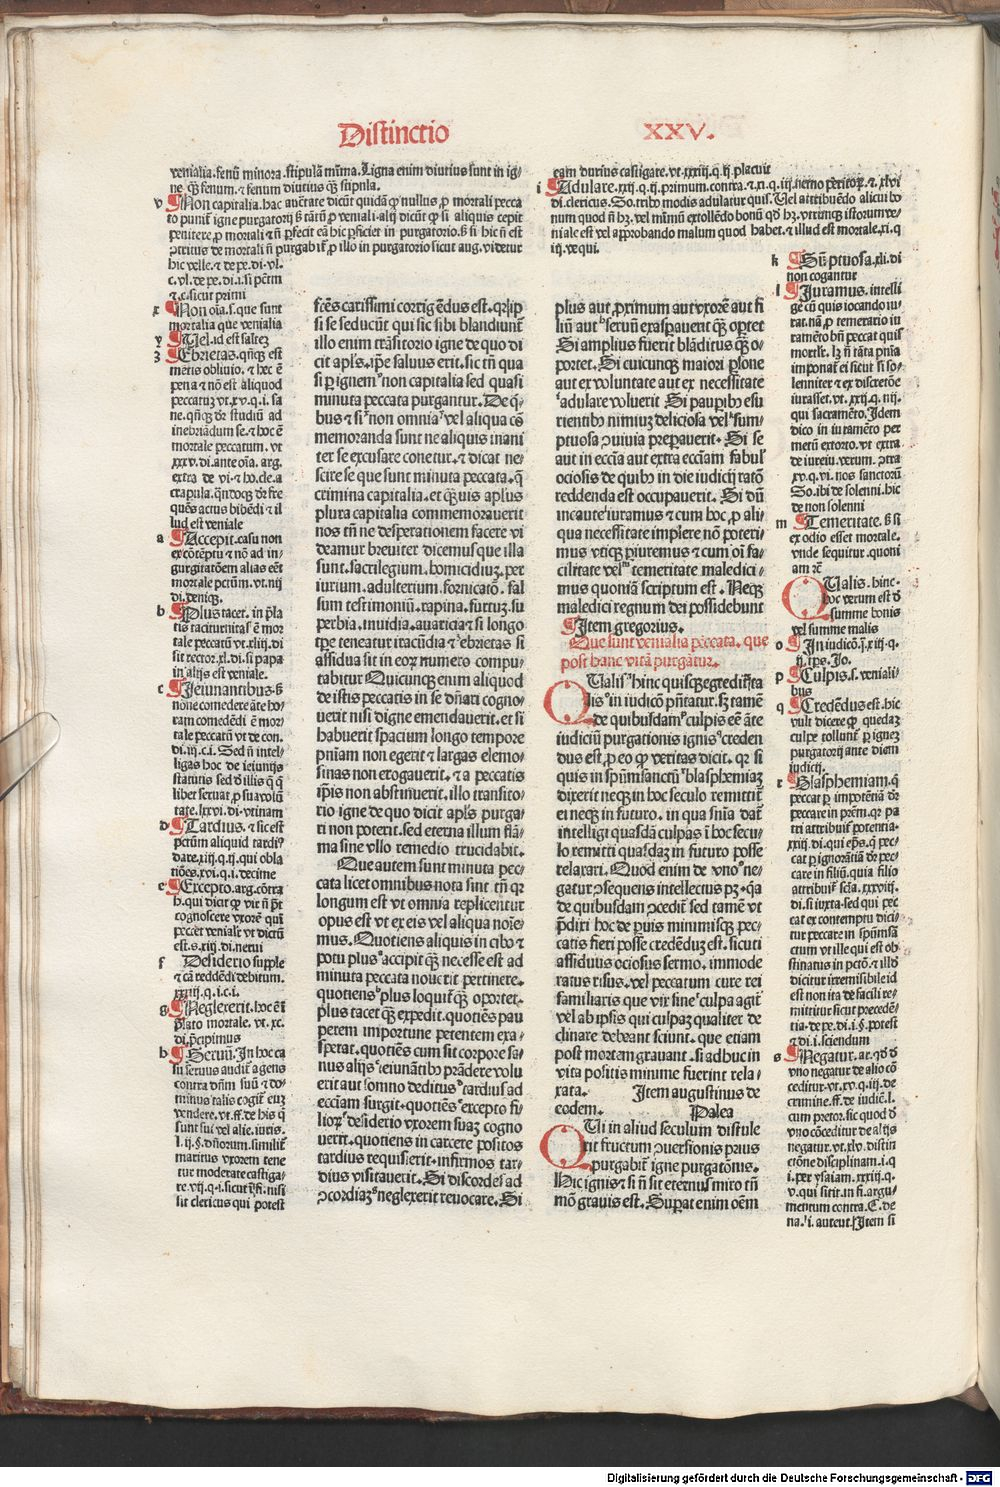 Distinctio
XXV.
venialia. fenũ minora. stipulã mĩma. Ligna enim diutius sunt in ig-
ne qȝ fenum. ⁊ fenum diutius qȝ stipula.
v ¶Non capitalia. hac auctẽ dicũt quidã ꝙ nullus ꝓ mortali pecca
hic velle. ⁊ de pe. di. vl.
c. vl. de pe. di. i. si pctm
⁊ .c. sicut primi
x ¶Non oĩa. s. que sunt
mortalia que venialia
y ¶Vel. id est saltez
z ¶Ebrietas. qñqȝ est
mẽtis obliuio. ⁊ hec ẽ
pena ⁊ nõ est aliquod
peccatuȝ vt .xv. q. i. sa
ne. qñqȝ ďr studiũ ad
inebriãdum se. ⁊ hoc ẽ
mortale peccatum. vt
xxxv. di. ante oĩa. arg.
extra de vi. ⁊ ho. cle. a
crapula. qñdoqȝ ďr fre
quẽs actus bibẽdi ⁊ il
lud est veniale
a ¶Accepit. casu non
ex cõtẽptu ⁊ nõ ad in-
gurgitatõem alias eẽt
mortale pctm. vt. iiij
di. deniqȝ.
b ¶Plus tacet. in p̃la
tis taciturnitas ẽ mor
tale peccatũ vt xliij. di
sit rector. xl. di. si papa
in alijs est veniale.
c ¶Ieiunantibus. s̃
none comedere ãte ho-
ram comedẽdi ẽ mor
tale peccatũ vt de con.
di. iij. c. i. Sed ñ intel-
ligas hoc de ieiunijs
statutis sed ď illis q̃ q̃
libet seruat ꝓ sua volũ
tate. lxxvi. di. vtinam
d ¶Tardius. ⁊ sic est
pctũm aliquid tardi⁹
dare. xiij. q. ij. qui obla
tiões. xvi. q. i. decime
e ¶Excepto. arg. cõtra
h. qui dicit ꝙ vir ñ p̃t
cognoscere vxorẽ quĩ
peccet veniale vt dictũ
est. s. xiij. di. nerui
f Desiderio supple
⁊ cã reddẽdi debitum.
xxxiij. q. i. c. i.
g ¶Neglexerit. hoc ẽ ĩ
p̃lato mortale. vt. xc.
di. p̃cipimus
h ¶Seruũ. In hoc ca
su seruus audiť agens
contra dñm suũ ⁊ do-
minus talis cogiť euȝ
vendere. vt. ff. de his q̃
sunt sui vel alie. iuris.
l. ij. §. dñorum. similiť
maritus vxorem tene
tur moderate castiga-
re. vij. q. i. sicut ṽri. nisi
sit clericus qui potest
fr̃es carissimi corrigẽdus est. qȝ ip
si se seducũt qui sic sibi blandiunť
illo enim trãsitorio igne de quo di
cit apľs. ip̃e saluus erit. sic tñ qua
si ꝑ ignem ˣnon capitalia sed quasi
minuta peccata purgantur. De q̃-
bus ⁊ si ˣnon omnia ʸvel aliqua cõ
memoranda sunt ne aliquis inani
ter se excusare conetur. ⁊ dicat ne-
scire se que sunt minuta peccata. q̃
crimina capitalia. et qȝuis apľus
plura capitalia commemorauerit
nos tñ ne desperationem facere vi
deamur breuiter dicemus que illa
sunt. sacrilegium. homicidiuȝ. per
iurium. adulterium. fornicatõ. fal
sum testimoniũ. rapina. furtuȝ. su
perbia. inuidia. auaricia ⁊ si longo
tp̃e teneatur iracũdia ⁊ ᶻebrietas si
assidua sit in eorȝ numero compu-
tabitur Quicunqȝ enim aliquod
de istis peccatis in se dñari cogno-
uerit nisi digne emendauerit. et si
habuerit spacium longo tempore
pñiam non egerit ⁊ largas elemo-
sinas non erogauerit. ⁊ a peccatis
ip̃is non abstinuerit. illo transito-
rio igne de quo dicit apľs purga-
ri non poterit. sed eterna illum flã-
ma sine vllo remedio trucidabit.
Que autem sunt minuta pec-
cata licet omnibus nota sint. tñ qȝ
longum est vt omnia replicentur
opus est vt ex eis vel aliqua noĩe-
mus. Quotiens aliquis in cibo ⁊
potu plus ᵃaccipit qȝ necesse est ad
minuta peccata nouerit pertinere.
quotiens ᵇplus loquiť qȝ oportet.
plus tacet qȝ expedit. quotiẽs pau
perem importune petentem exa-
sperat. quotiẽs cum sit corpore sa-
nus alijs ᶜieiunãtibus prãdere volu
erit aut somno deditus ᵈtardius ad
ecciam surgit. quotiẽs ᵉexcepto fi-
liorȝ ᶠdesiderio vxorem suaȝ cogno
uerit. quotiens in carcere positos
tardius requisierit. infirmos tar-
dius visitauerit. Si discordes ad
ꝯcordiaȝ ᵍneglexerit reuocare. Si
eam durius castigate. vt. xxxiij. q. ij. placuit
iij. ve qui.
plus aut ꝓximum aut vxorẽ aut fi
liũ aut ʰseruũ exasperauerit qȝ oportet
Si amplius fuerit blãditus qȝ o-
portet. Si cuicunqȝ maiori ꝑsone
aut ex voluntate aut ex necessitate
ⁱadulare voluerit Si pauperibȝ esu
rientibȝ nimiuȝ deliciosa vel ᵏsum-
ptuosa ꝯuiuia preparauerit. Si se
aut in ecc̃ia aut extra ecc̃iam fabuľ
ociosis de quibȝ in die iudicij ratõ
reddenda est occupauerit. Si dũ
incaute ˡiuramus ⁊ cum hoc ꝓ ali-
qua necessitate implere nõ poteri-
mus vtiqȝ piuremus ⁊ cum oĩ fa-
cilitate vel ᵐtemeritate maledici-
mus quoniã scriptum est. Neqȝ
maledici regnum dei possidebunt
¶Item gregorius.
Que sunt venialia peccata, que
post hanc vitã purgãtur.
QUalis ⁿhinc quisqȝ egredit̃. ta
lis ᵒin iudicõ p̃ñtatur. sȝ tamẽ
de quibusdam ᵖculpis eẽ ãte
iudiciũ purgationis ignis ᵠcreden
dus est. ꝓ eo ꝙ veritas dicit. qȝ si
quis in spũm sanctũ ʳblasphemiaȝ
dixerit neqȝ in hoc seculo remittiť
ei neqȝ in futuro. in qua sñia dať
intelligi quasdã culpas ĩ hoc secu-
lo remitti quasdaȝ in futuro posse
relaxari. Quod enim de vno ˢne-
gatur ꝯsequens intellectus pȝ. qã
de quibusdam ꝯcediť sed tamẽ vt
p̃dixi hoc de ꝑuis minimisqȝ pec-
catis fieri posse credẽduȝ est. sicuti
assiduus ociosus sermo. immode
ratus risus. vel peccatum cure rei
familiaris que vix sine ᵗculpa agiť
vel ab ipsis qui culpaȝ qualiter de
clinare debeant sciunt. que etiam
post mortem grauant. si adhuc in
vita positis minime fuerint rela-
xata. Item augustinus de
eodem. Palea
QUi in aliud seculum distule
rit fructum ꝯuersionis prius
purgabiť igne purgatõnis.
Hic ignis ⁊ si ñ sit eternus miro tñ
mõ grauis est. Supat enim oẽm
k ¶Sũptuosa. xli. di
non cogantur
l ¶Iuramus. intelli
ge cũ quis iocando iu-
rat. nã ꝓ temerario iu
ramẽto bñ peccat quis
morťlr. lȝ ñ tãta pñia
imponať ei sicut si so-
lenniter ⁊ ex discretõe
iurasset. vt. xxij. q. iiij.
qui sacramẽto. Idem
dico in iuramẽto per
metũ extorto. vt extra
de iureiu. verum. ꝯtra
xv. q. vi. nos sanctorũ
So. ibi de solenni. hic
de non solenni
m ¶Temeritate. s̃ si
ex odio esset mortale.
vnde sequitur. quoni
am ꝛc̃
QUalis. hinc.
hoc verum est ď
summe bonis
vel summe malis
o ¶In iudicõ. j. xiij. q.
ij. ip̃s. Jo.
p ¶Culpis. s. veniali-
bus
q ¶Credẽdus est. hic
vult dicere ꝙ quedaȝ
culpe tollunť ꝑ ignez
purgatorij ante diem
iudicij.
r ¶Blasphemiam. q̃
peccat ꝑ impotẽtiã ďr
peccare in prẽm. qȝ pa
tri attribuiť potentia.
xxiij. di. qui ep̃s. q̃ pec
cat ꝑ ignorãtiã ďr pec-
care in filiũ. quia filio
attribuiť scĩa. xxxviij.
di. si iuxta. sed qui pec
cat ex contemptu dici
tur peccare in spũm sã
ctum vt ille qui est ob
stinatus in pctõ. ⁊ illď
dicitur irremisibile id
est non ita de facili re-
mittitur sicut preceden-
tia. de pe. di. i. §. potest
⁊ di. i. sciendum
s ¶Negatur. ar. qď ď
vno negatur de alio cõ
ceditur. vt. xv. q. iij. de
crimine. ff. de iudic̃. l.
cum pretor. sic quod ď
vno cõceditur de alijs
negatur. vt. xlv. distin
ctiõne disciplinam. i. q
i. per ysaiam. xxiij. q.
v. qui sitit. in fi. argu-
mentum contra. C. de
na. l. i. auteut. Item si
Digitalisierung gefördert durch die Deutsche Forschungsgemeinschaft - DFG